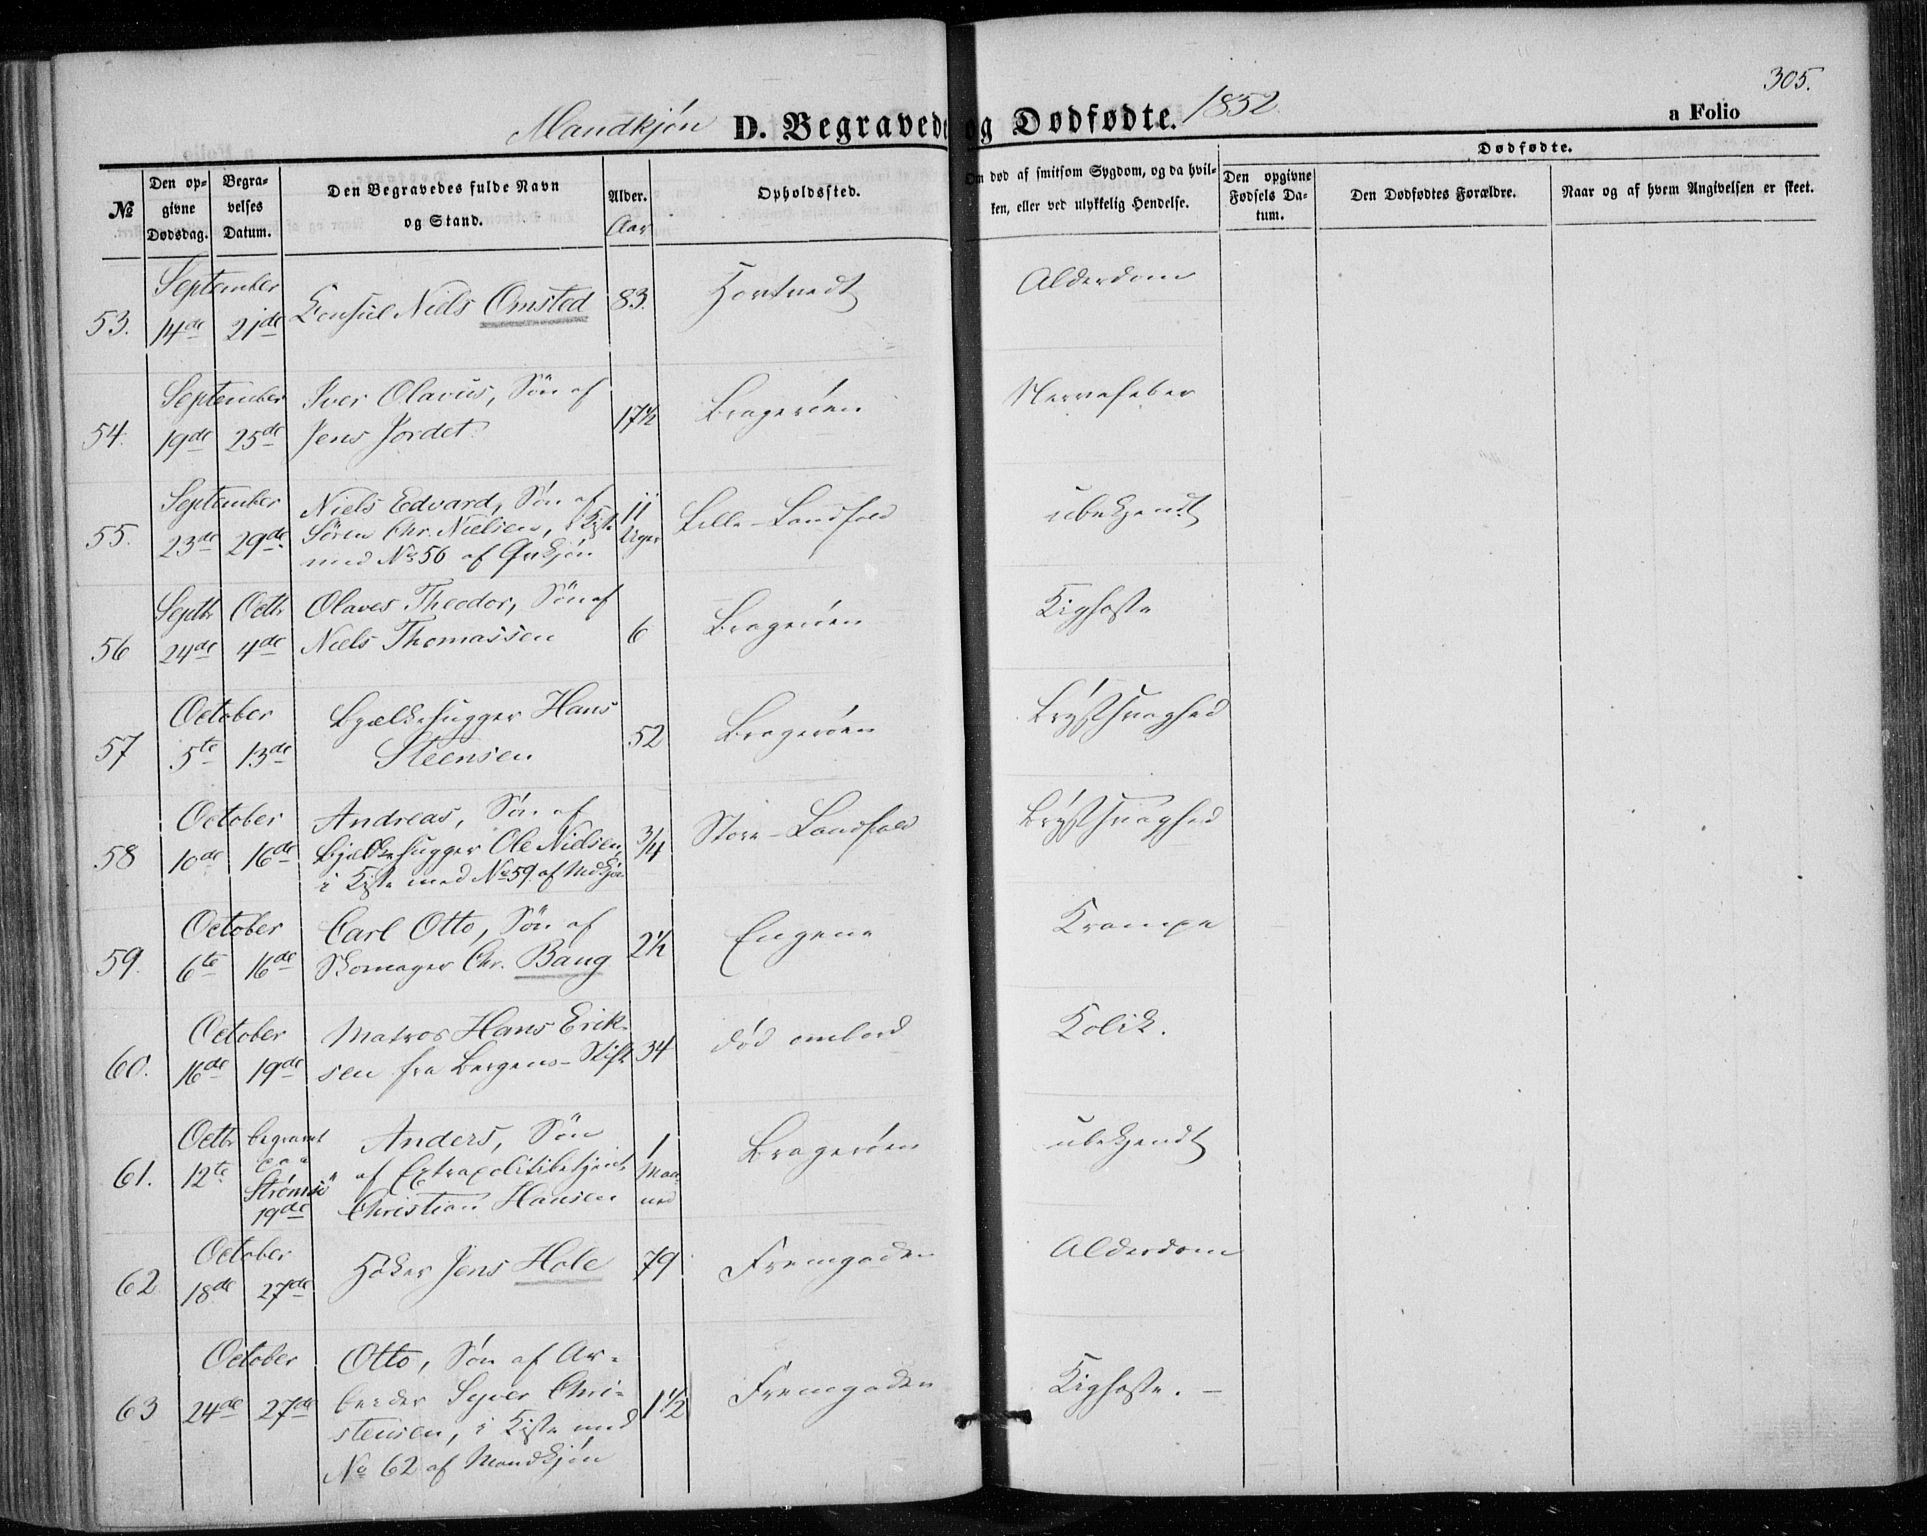 305.
Mandkjøn D. Begravede og Dødfødte. 1852
a Folio
№
Den opgivne Dødsdag.
Begravelses Datum.
Den Begravedes fulde Navn og Stand.
Alder.
Aar
Opholdssted.
Om død af smitsom Sygdom, og da hvilken, eller ved ulykkelig Hendelse.
Dødfødte.
Den opgivne Fødsels Datum.
Den Dødfødtes Forældre.
Naar og af hvem Angivelsen er skeet.
September
53. 14de 21de Consul Niels Omsted 83. Hortvedt Alderdom
September Iver Olavus, Søn af
54. 19de 25de Jens Jordet. 17½ Bragerøen Nervefeber
September Niels Edvard, Søn af 11
55. 23de 29de Søren Chr. Nielsen, i Kiste Uger Lille-Landfald ubekjendt
med No 56 af Qvkjøn
Septbr Octbr Olaves Theodor, Søn af
56 24de 4de Niels Thomassen 6 Bragerøen Kighoste
October Bjælkehugger Hans
57 5te 13de Steensen 52 Bragerøen Brystsvaghed
October Andreas, Søn af
58 10de 16de Bjælkehugger Ole Nielsen 3/4 Store-Landfald Brystsvaghed
i Kiste med No 59. af Mdkjøn
October Carl Otto, Søn af
59. 6te 16de Skomager Chr. Bang 2½ Engene Krampe
October Matros Hans Erik-
60. 16de 19de sen fra Bergens-Stift 34 død ombord Kolik.
Octbr begravet paa Strømsø 19de
61. 12te Anders, Søn
af Extrapolitibetjent
Christian Hansen
1 Maaned Bragerøen ubekjendt
October
62 18de 27de Høker Jens Hole 79 Fremgaden Alderdom
October Otto, Søn af Ar-
63 24de 27de beider Syver Chri- 1½ Fremgaden Kighoste. -
stensen, i Kiste med
No 62 af Mandkjøn